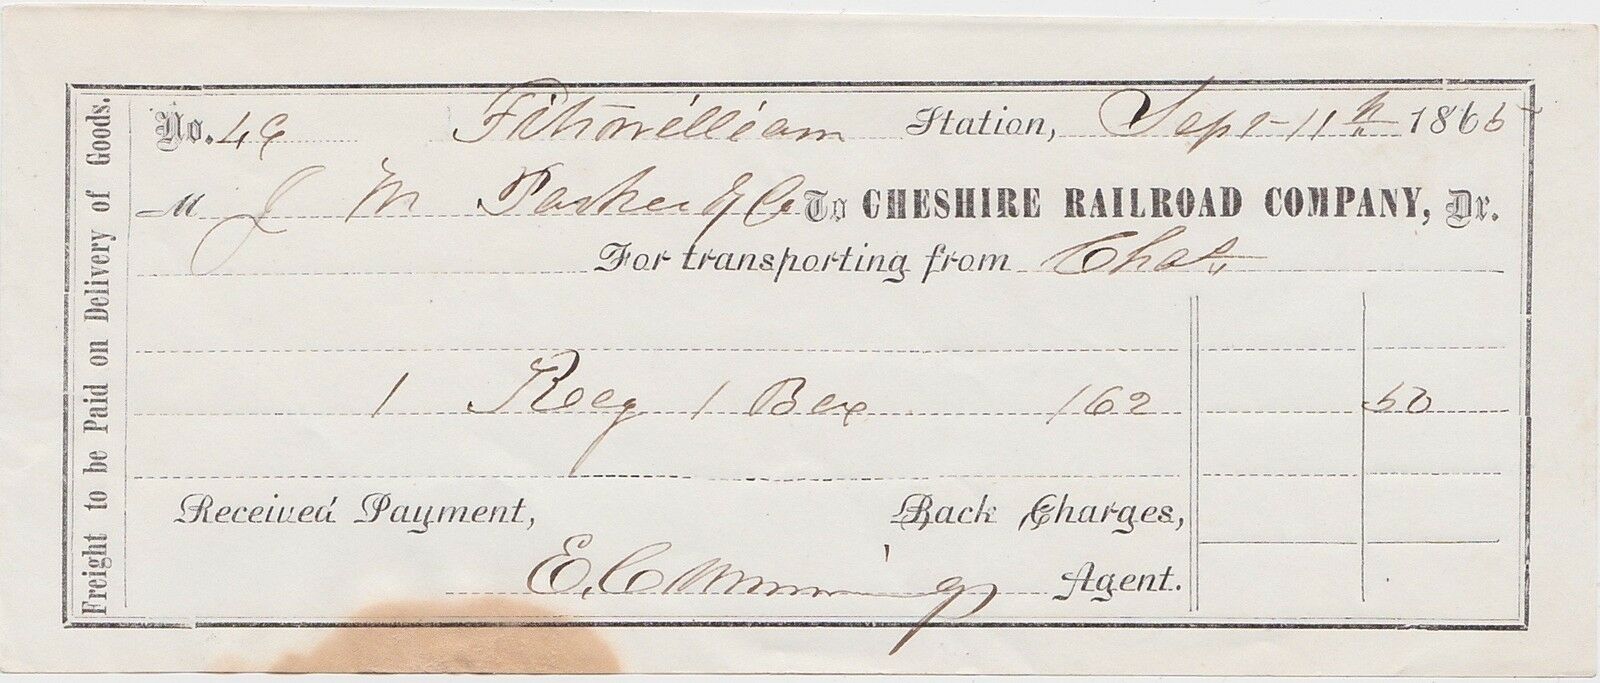 Freight to be Paid on Delivery of Goods.
No. 49 Fitzwilliam Station, Sept 11th 1865
M J M Parker & Co To CHESHIRE RAILROAD COMPANY, Dr.
For transporting from
1 Keg 1 Box 162 50
Received Payment, Back Charges,
E. Cummings Agent.